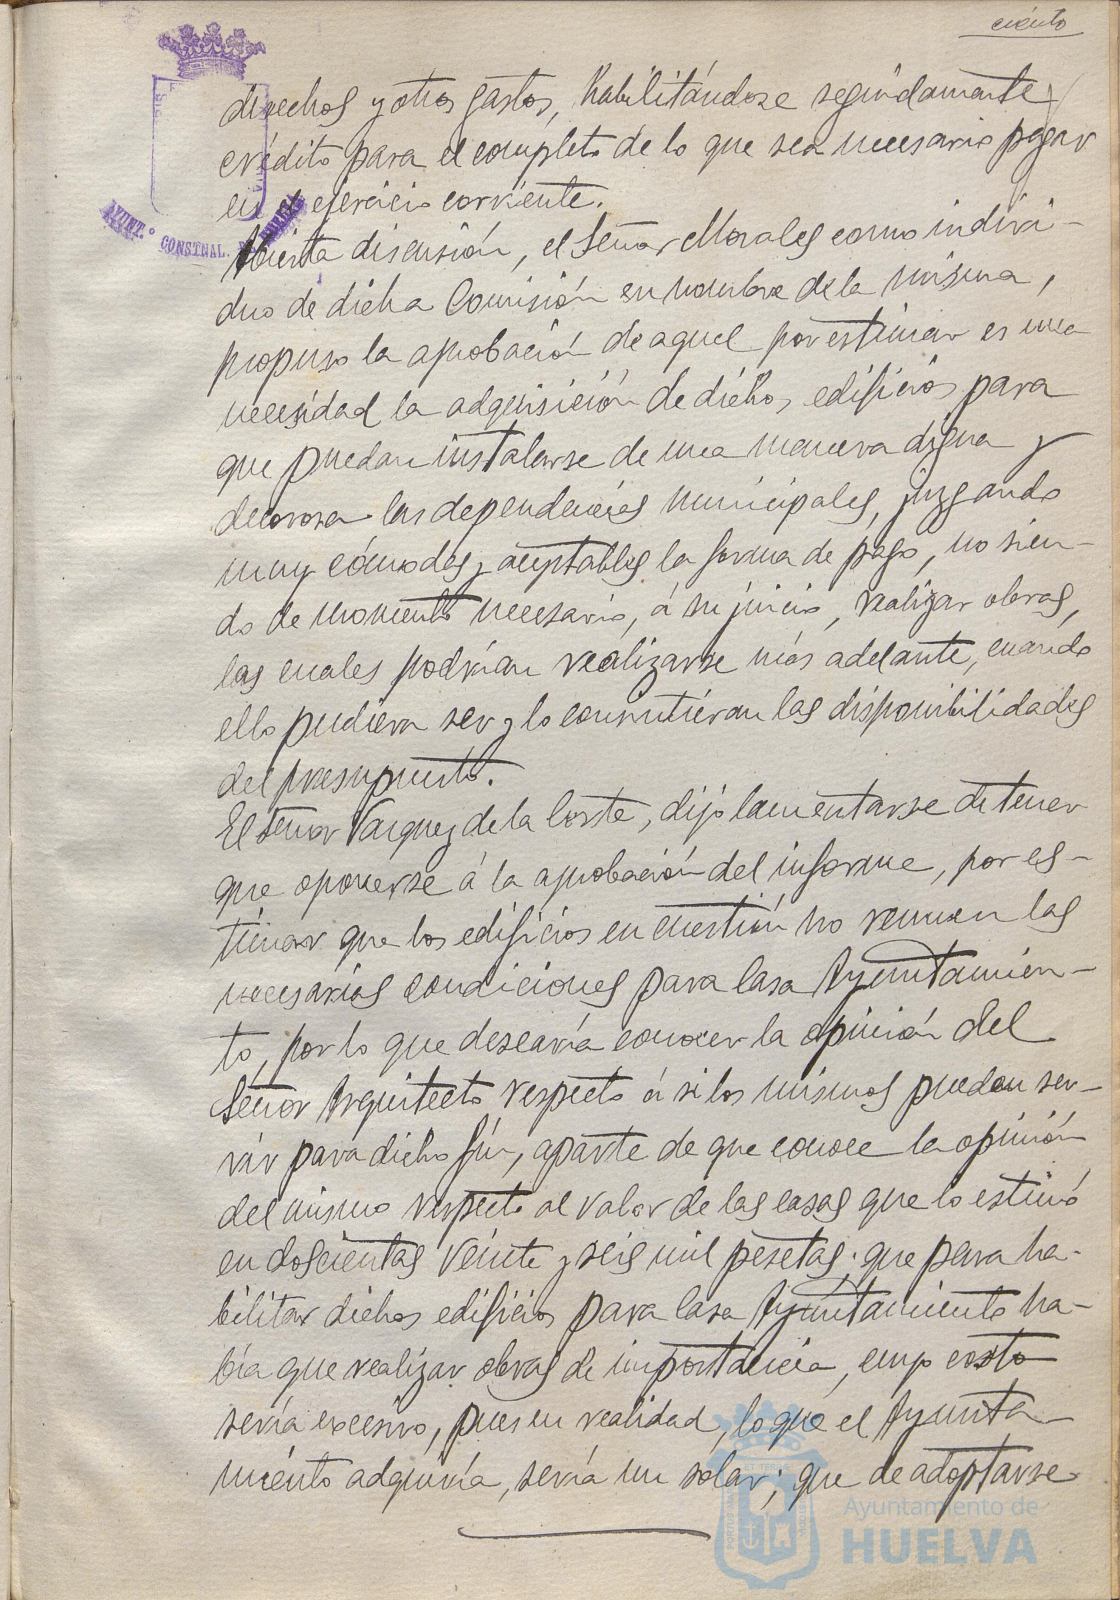 ciento
derechos y otros gastos, habilitándose seguidamente
crédito para el completo de lo que sea necesario pagar
en el ejercicio corriente.
AYUNT.º CONSTNAL. DE HUELVA
Abierta discusión, el Señor Morales como indivi-
duo de dicha Comisión en nombre de la misma,
propuso la aprobación de aquel por estimar es una
necesidad la adquisición de dichos edificios para
que puedan instalarse de una manera digna y
decorosa las dependencias municipales, juzgando
muy cómodas y aceptables la forma de pago, no sien-
do de momento necesario, á su juicio, realizar obras,
las cuales podrían realizarse más adelante, cuando
ello pudiera ser y lo consintieran las disponibilidades
del presupuesto.
El Señor Vazquez de la Corte, dijo lamentarse de tener
que oponerse á la aprobación del informe, por es-
timar que los edificios en cuestión no reunen las
necesarias condiciones para Casa Ayuntamien-
to, por lo que desearía conocer la opinión del
Señor Arquitecto respecto á si los mismos pueden ser-
vir para dicho fin, aparte de que conoce la opinión
del mismo respecto al valor de las casas que lo estimó
en doscientas veinte y seis mil pesetas; que para ha-
bilitar dichos edificios para Casa Ayuntamiento ha-
bía que realizar obras de importancia, cuyo costo
sería excesivo, pues en realidad, lo que el Ayunta-
miento adquiría, sería un solar; que de adoptarse
Ayuntamiento de
HUELVA